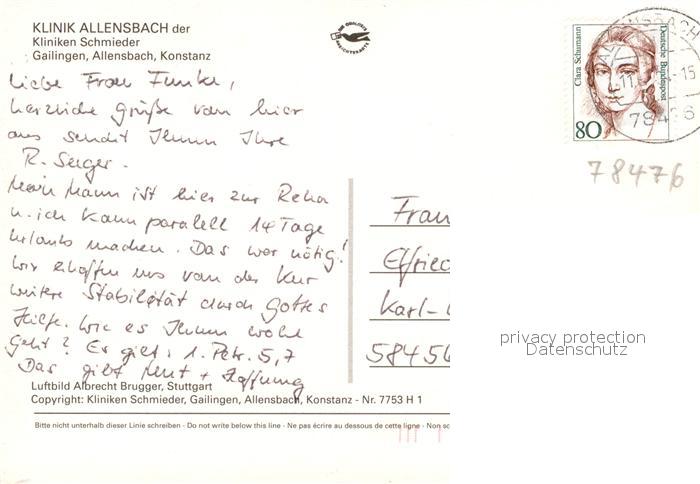 KLINIK ALLENSBACH der
Kliniken Schmieder
Gailingen, Allensbach, Konstanz
DIE QUALITÄTS
ANSICHTSKARTE
Clara Schumann
Deutsche Bundespost
80
NSBACH
11. -15
78476
78476
Liebe Frau Funke,
herzliche Grüße von hier
aus sendet Ihnen Ihre
R. Seeger.
Mein Mann ist hier zur Reha
u. ich kann paralell 14 Tage
Urlaub machen. Das war nötig!
Wir erhoffen uns von der Kur
weitere Stabilität durch Gottes
Hilfe. Wie es Ihnen wohl
geht? Es gilt: 1. Petr. 5,7
Das gibt Mut + Hoffnung
Frau
Elfried
Karl-
58456
privacy protection
Datenschutz
Luftbild Albrecht Brugger, Stuttgart
Copyright: Kliniken Schmieder, Gailingen, Allensbach, Konstanz - Nr. 7753 H 1
Bitte nicht unterhalb dieser Linie schreiben - Do not write below this line - Ne pas écrire au dessous de cette ligne - Non sc